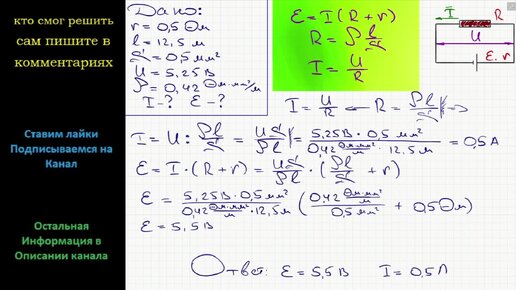 кто смог решить
сам пишите в
комментариях
Ставим лайки
Подписываемся на
Канал
Остальная
Информация в
Описании канала
Дано:
r = 0,5 Ом
l = 12,5 м
S = 0,5 мм²
U = 5,25 В
ρ = 0,42 Ом·мм²/м
I - ? ε - ?
ε = I(R + r)
R = ρl/S
I = U/R
I R
U
ε, r
I = U/R ← R = ρl/S
I = U : ρl/S = US/ρl = 5,25В · 0,5 мм² / 0,42 Ом·мм²/м · 12,5 м = 0,5А
ε = I·(R + r) = US/ρl · (ρl/S + r)
ε = 5,25В · 0,5 мм² / 0,42 Ом·мм²/м · 12,5м (0,42 Ом·мм²/м / 0,5 мм² + 0,5 Ом)
ε = 5,5В
Ответ: ε = 5,5В I = 0,5А